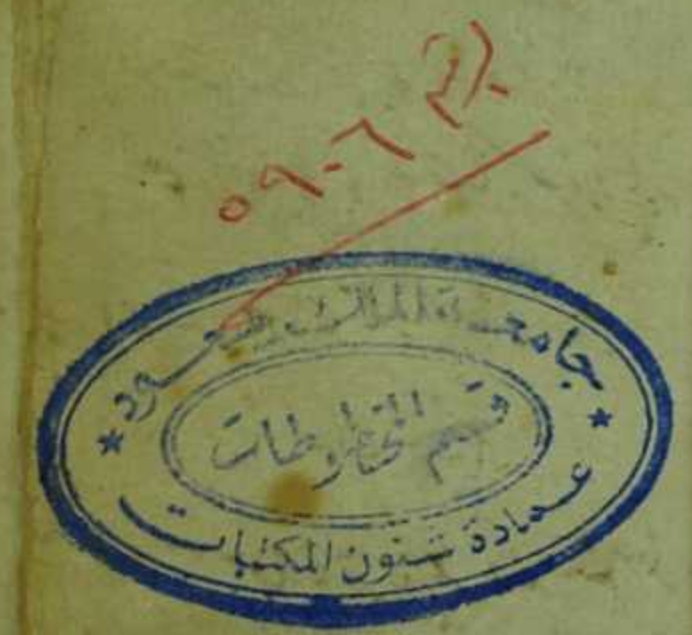 ٥٩-٦
جامعة الملك سعود
قسم المخطوطات
عمادة شئون المكتبات